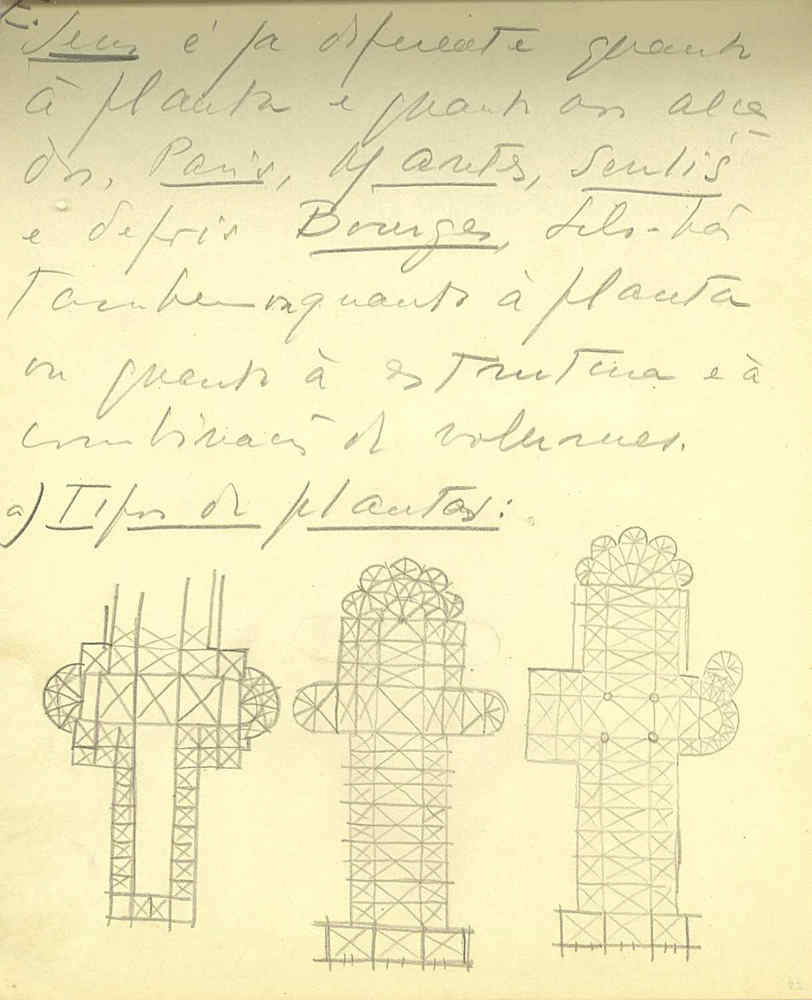 Sens é ja diferente quanto
à planta e quanto aos alça
dos. Paris, Mantes, Senlis
e depois Bourges, sils-hão
Tambem ou quanto à planta
ou quanto à estrutura e à
combinação de volumes.
a) Tipos de plantas: